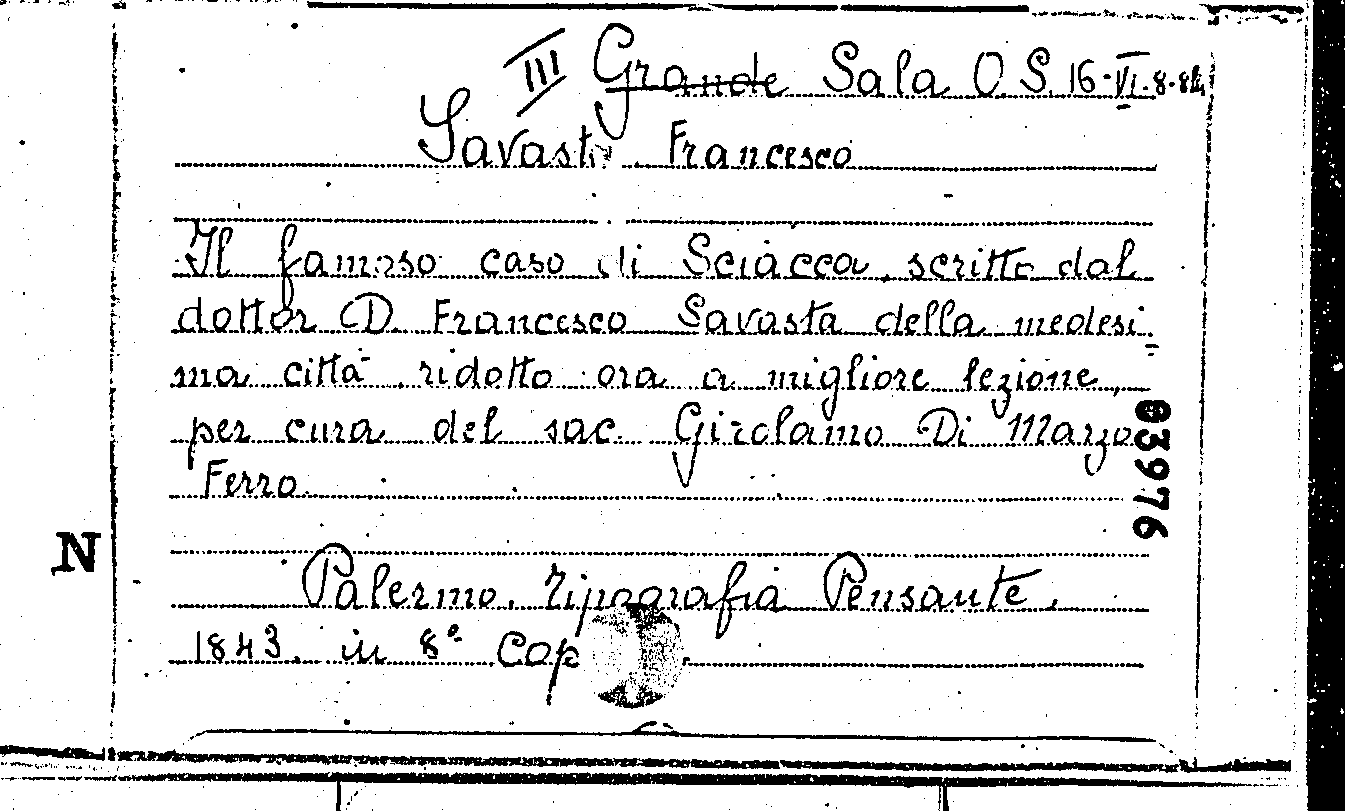 III Grande Sala O.S. 16-VI-8-84
Savasta Francesco
Il famoso caso di Sciacca, scritto dal
dottor D. Francesco Savasta della medesi=
ma città, ridotto ora a migliore lezione,
per cura del sac. Girolamo Di Marzo
Ferro.
03976
N
Palermo, Tipografia Pensante,
1843. in 8° Cop